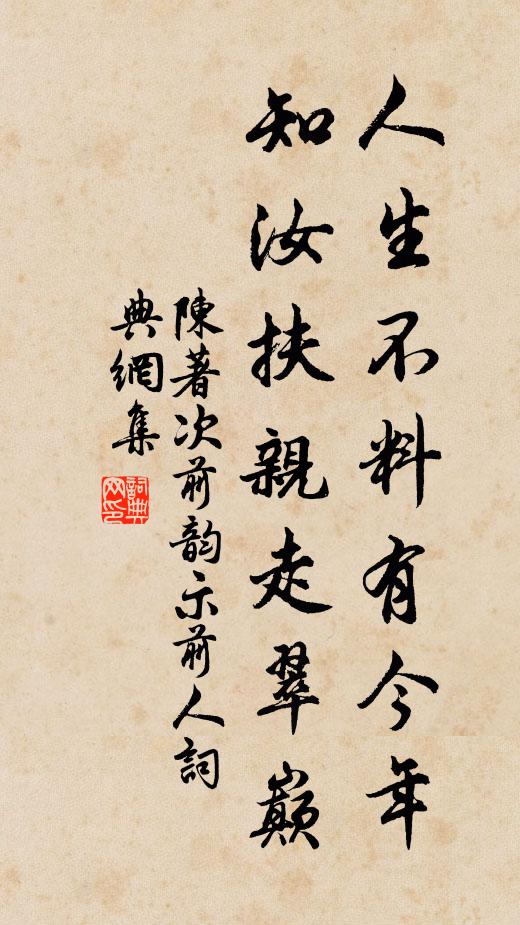 人生不料有今年
知汝扶親走翠巔
陳著次前韵示前人詞
典網集
詞典网印